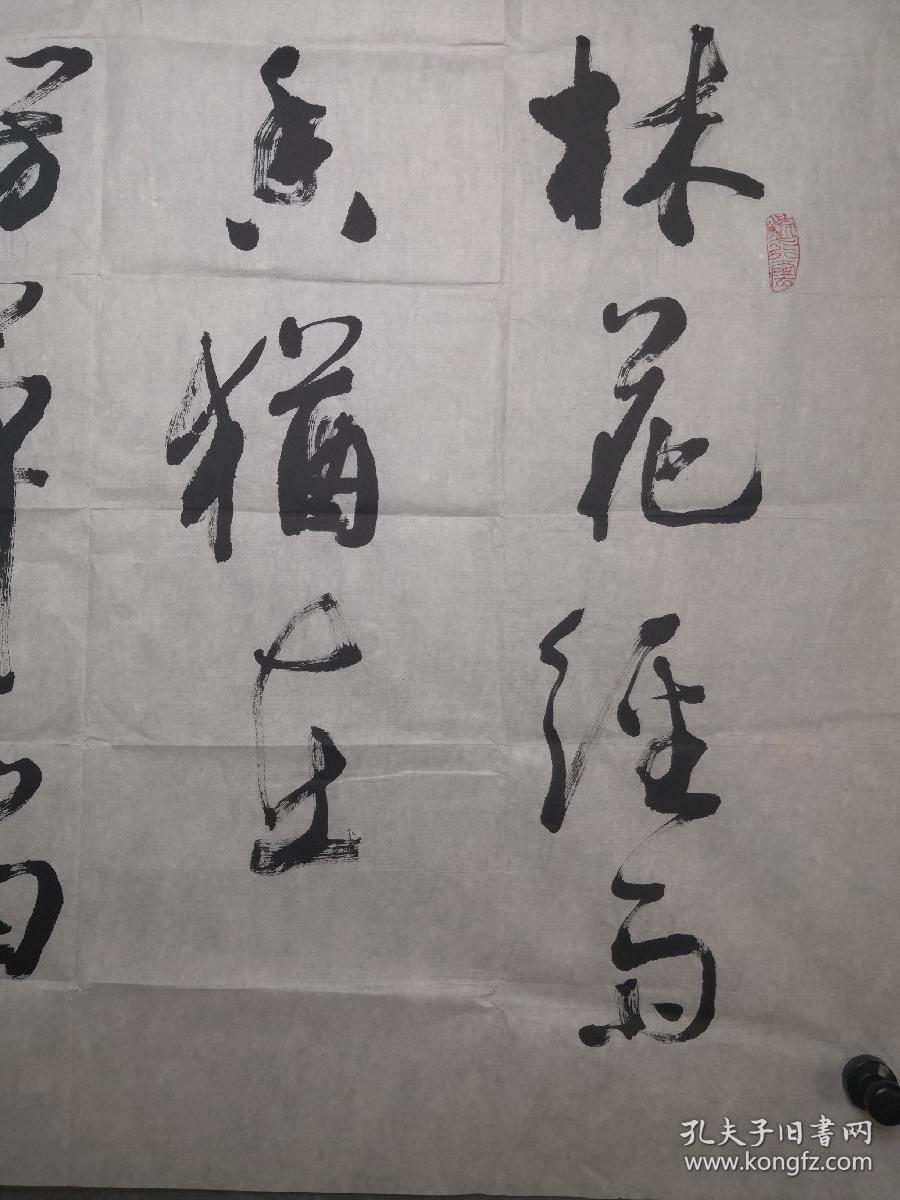 林花经雨
香犹在
芳草留
孔夫子旧书网
www.kongfz.com